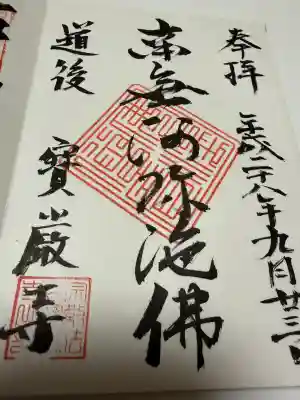 奉拝
平成二十八年九月廿三日
南無阿弥陀佛
道後
寳厳寺